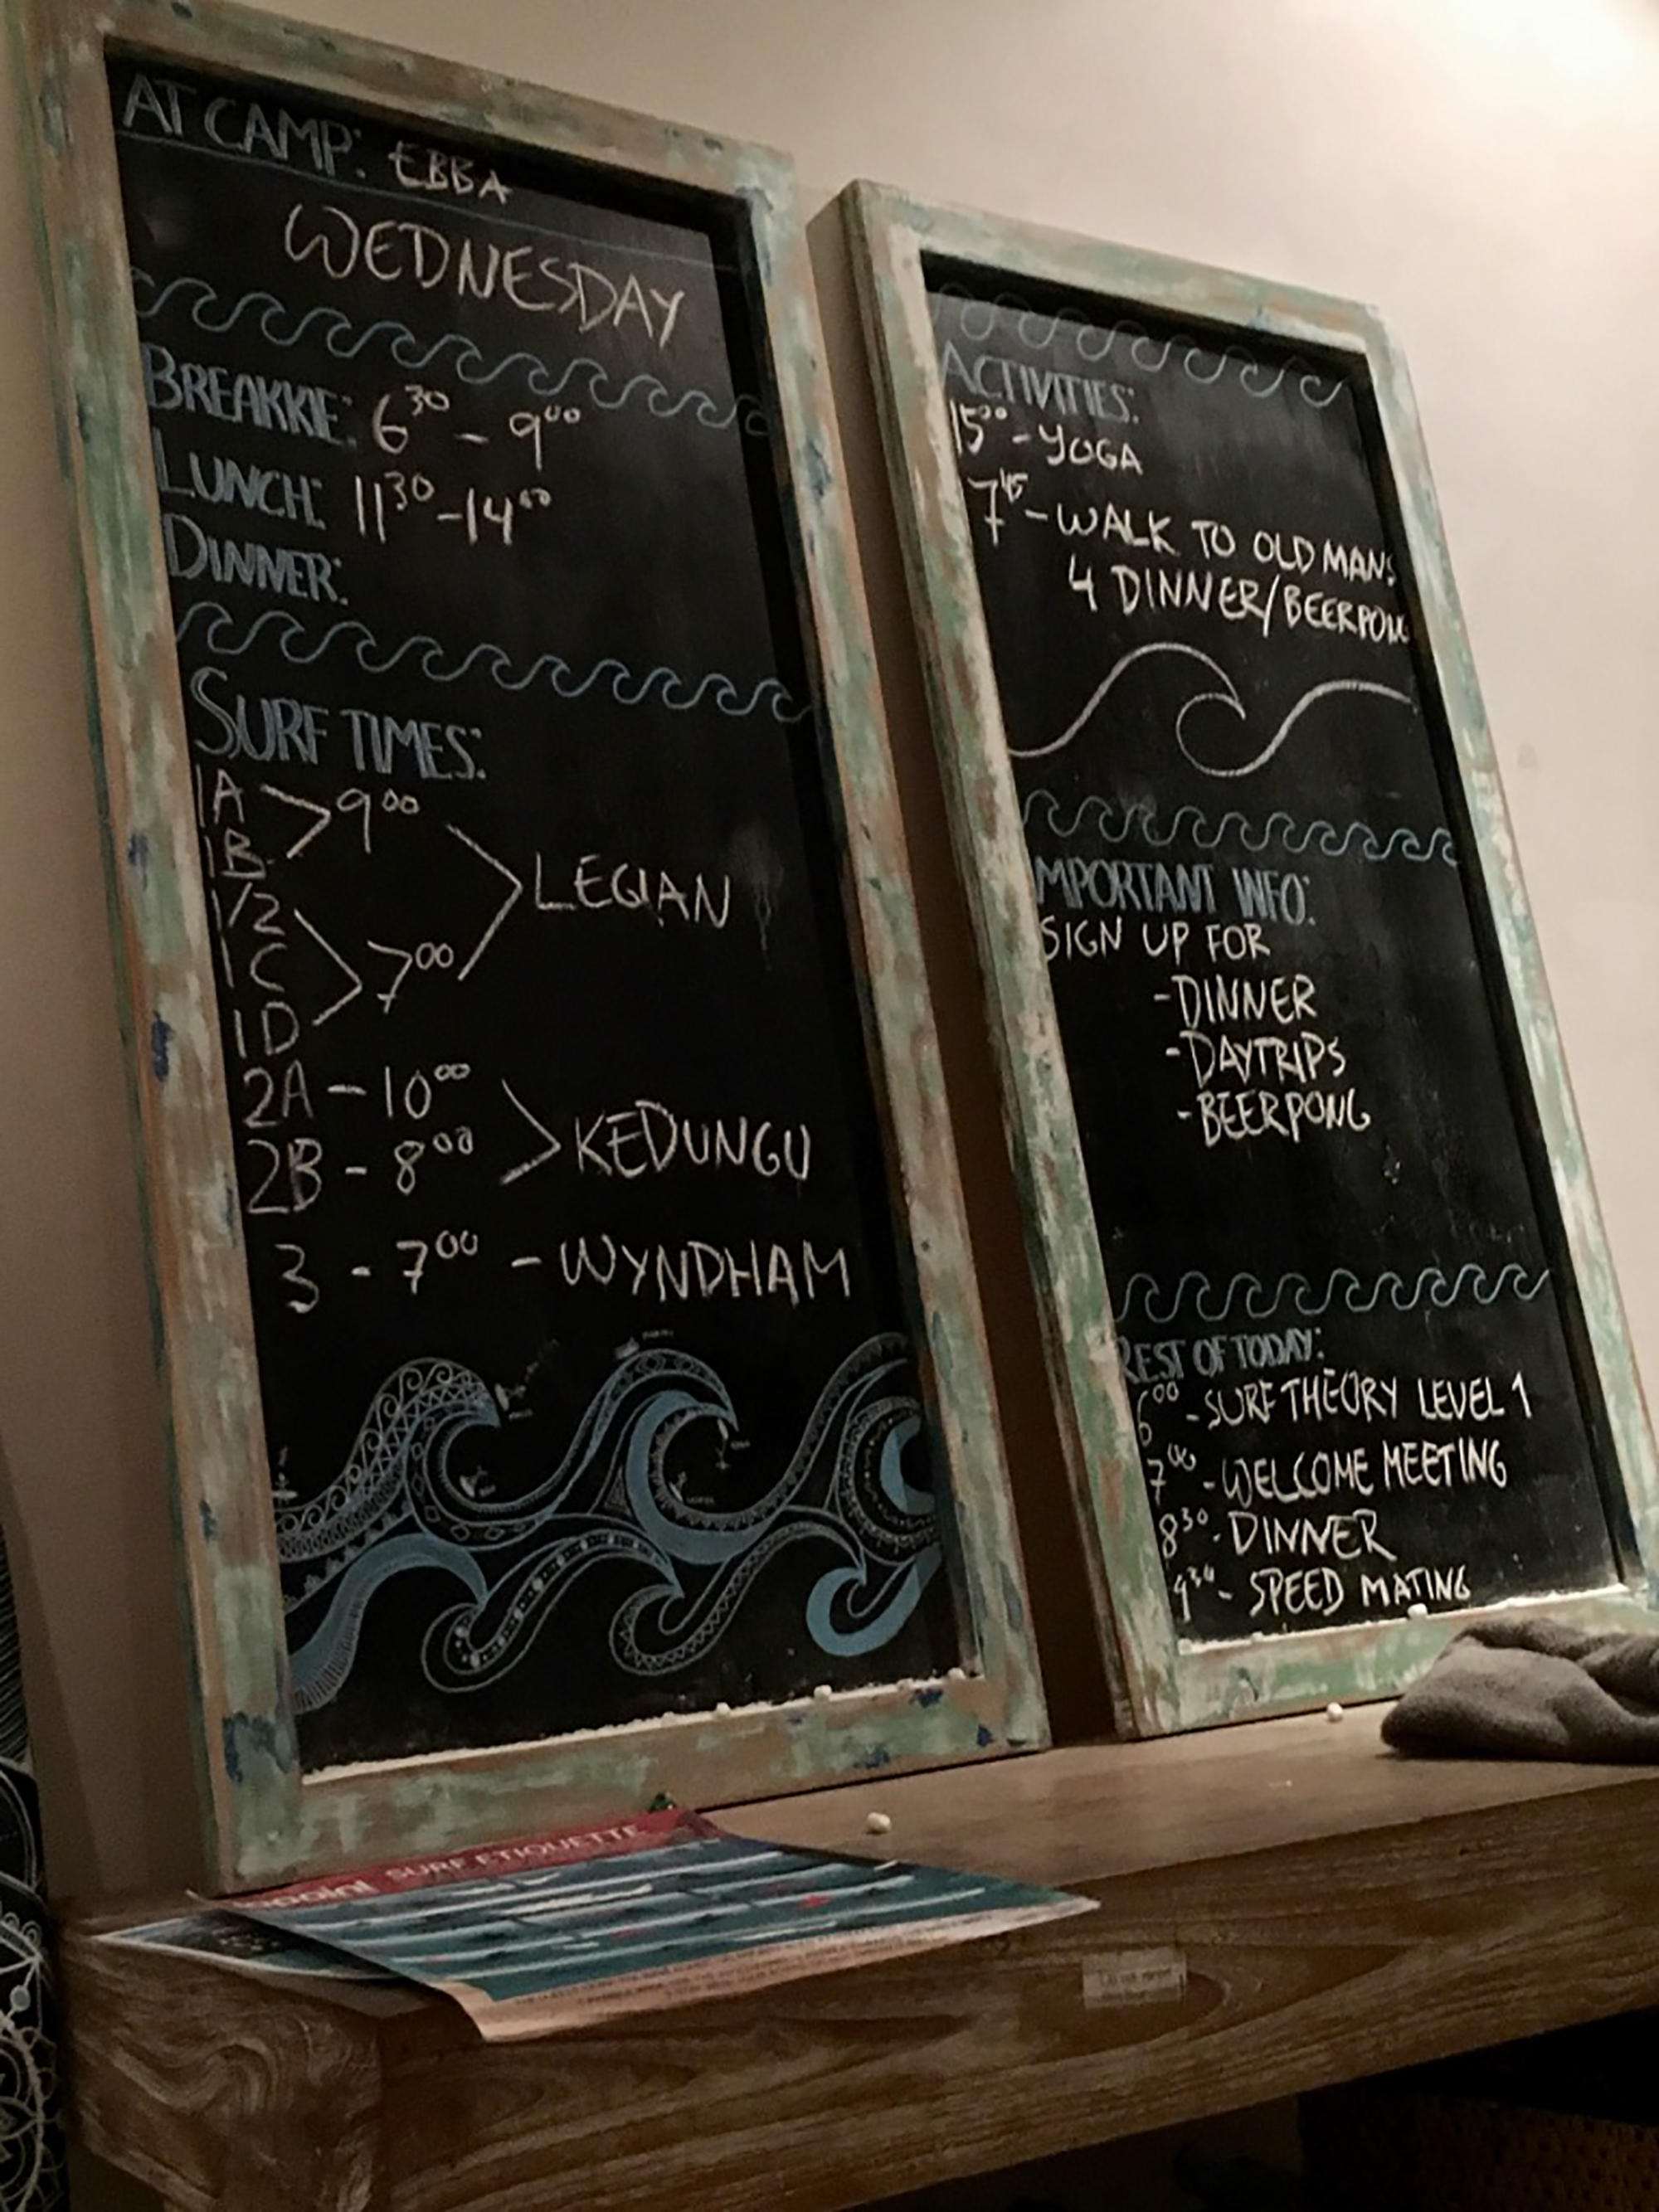 AT CAMP: EBBA
WEDNESDAY
BREAKKIE: 6³⁰ - 9⁰⁰
LUNCH: 11³⁰ - 14⁰⁰
DINNER:
SURF TIMES:
1A
1B
9⁰⁰
1/2
1C
1D
7⁰⁰
LEGIAN
2A - 10⁰⁰
2B - 8⁰⁰
KEDUNGU
3 - 7⁰⁰ - WYNDHAM
ACTIVITIES:
15⁰⁰ - YOGA
7⁴⁵ - WALK TO OLD MANS
4 DINNER/BEERPONG
IMPORTANT INFO:
SIGN UP FOR
- DINNER
- DAYTRIPS
- BEERPONG
REST OF TODAY:
6⁰⁰ - SURF THEORY LEVEL 1
7⁰⁰ - WELCOME MEETING
8³⁰ - DINNER
9³⁰ - SPEED MATING
point SURF ETIQUETTE